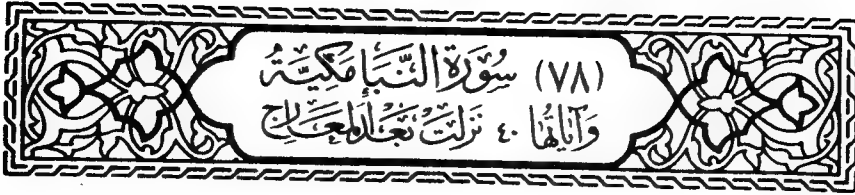 (٧٨) سُورَةُ النَّبَإِ مَكِّيَّةٌ
وَآيَاتُهَا ٤٠ نَزَلَتْ بَعْدَ الْمَعَارِجِ